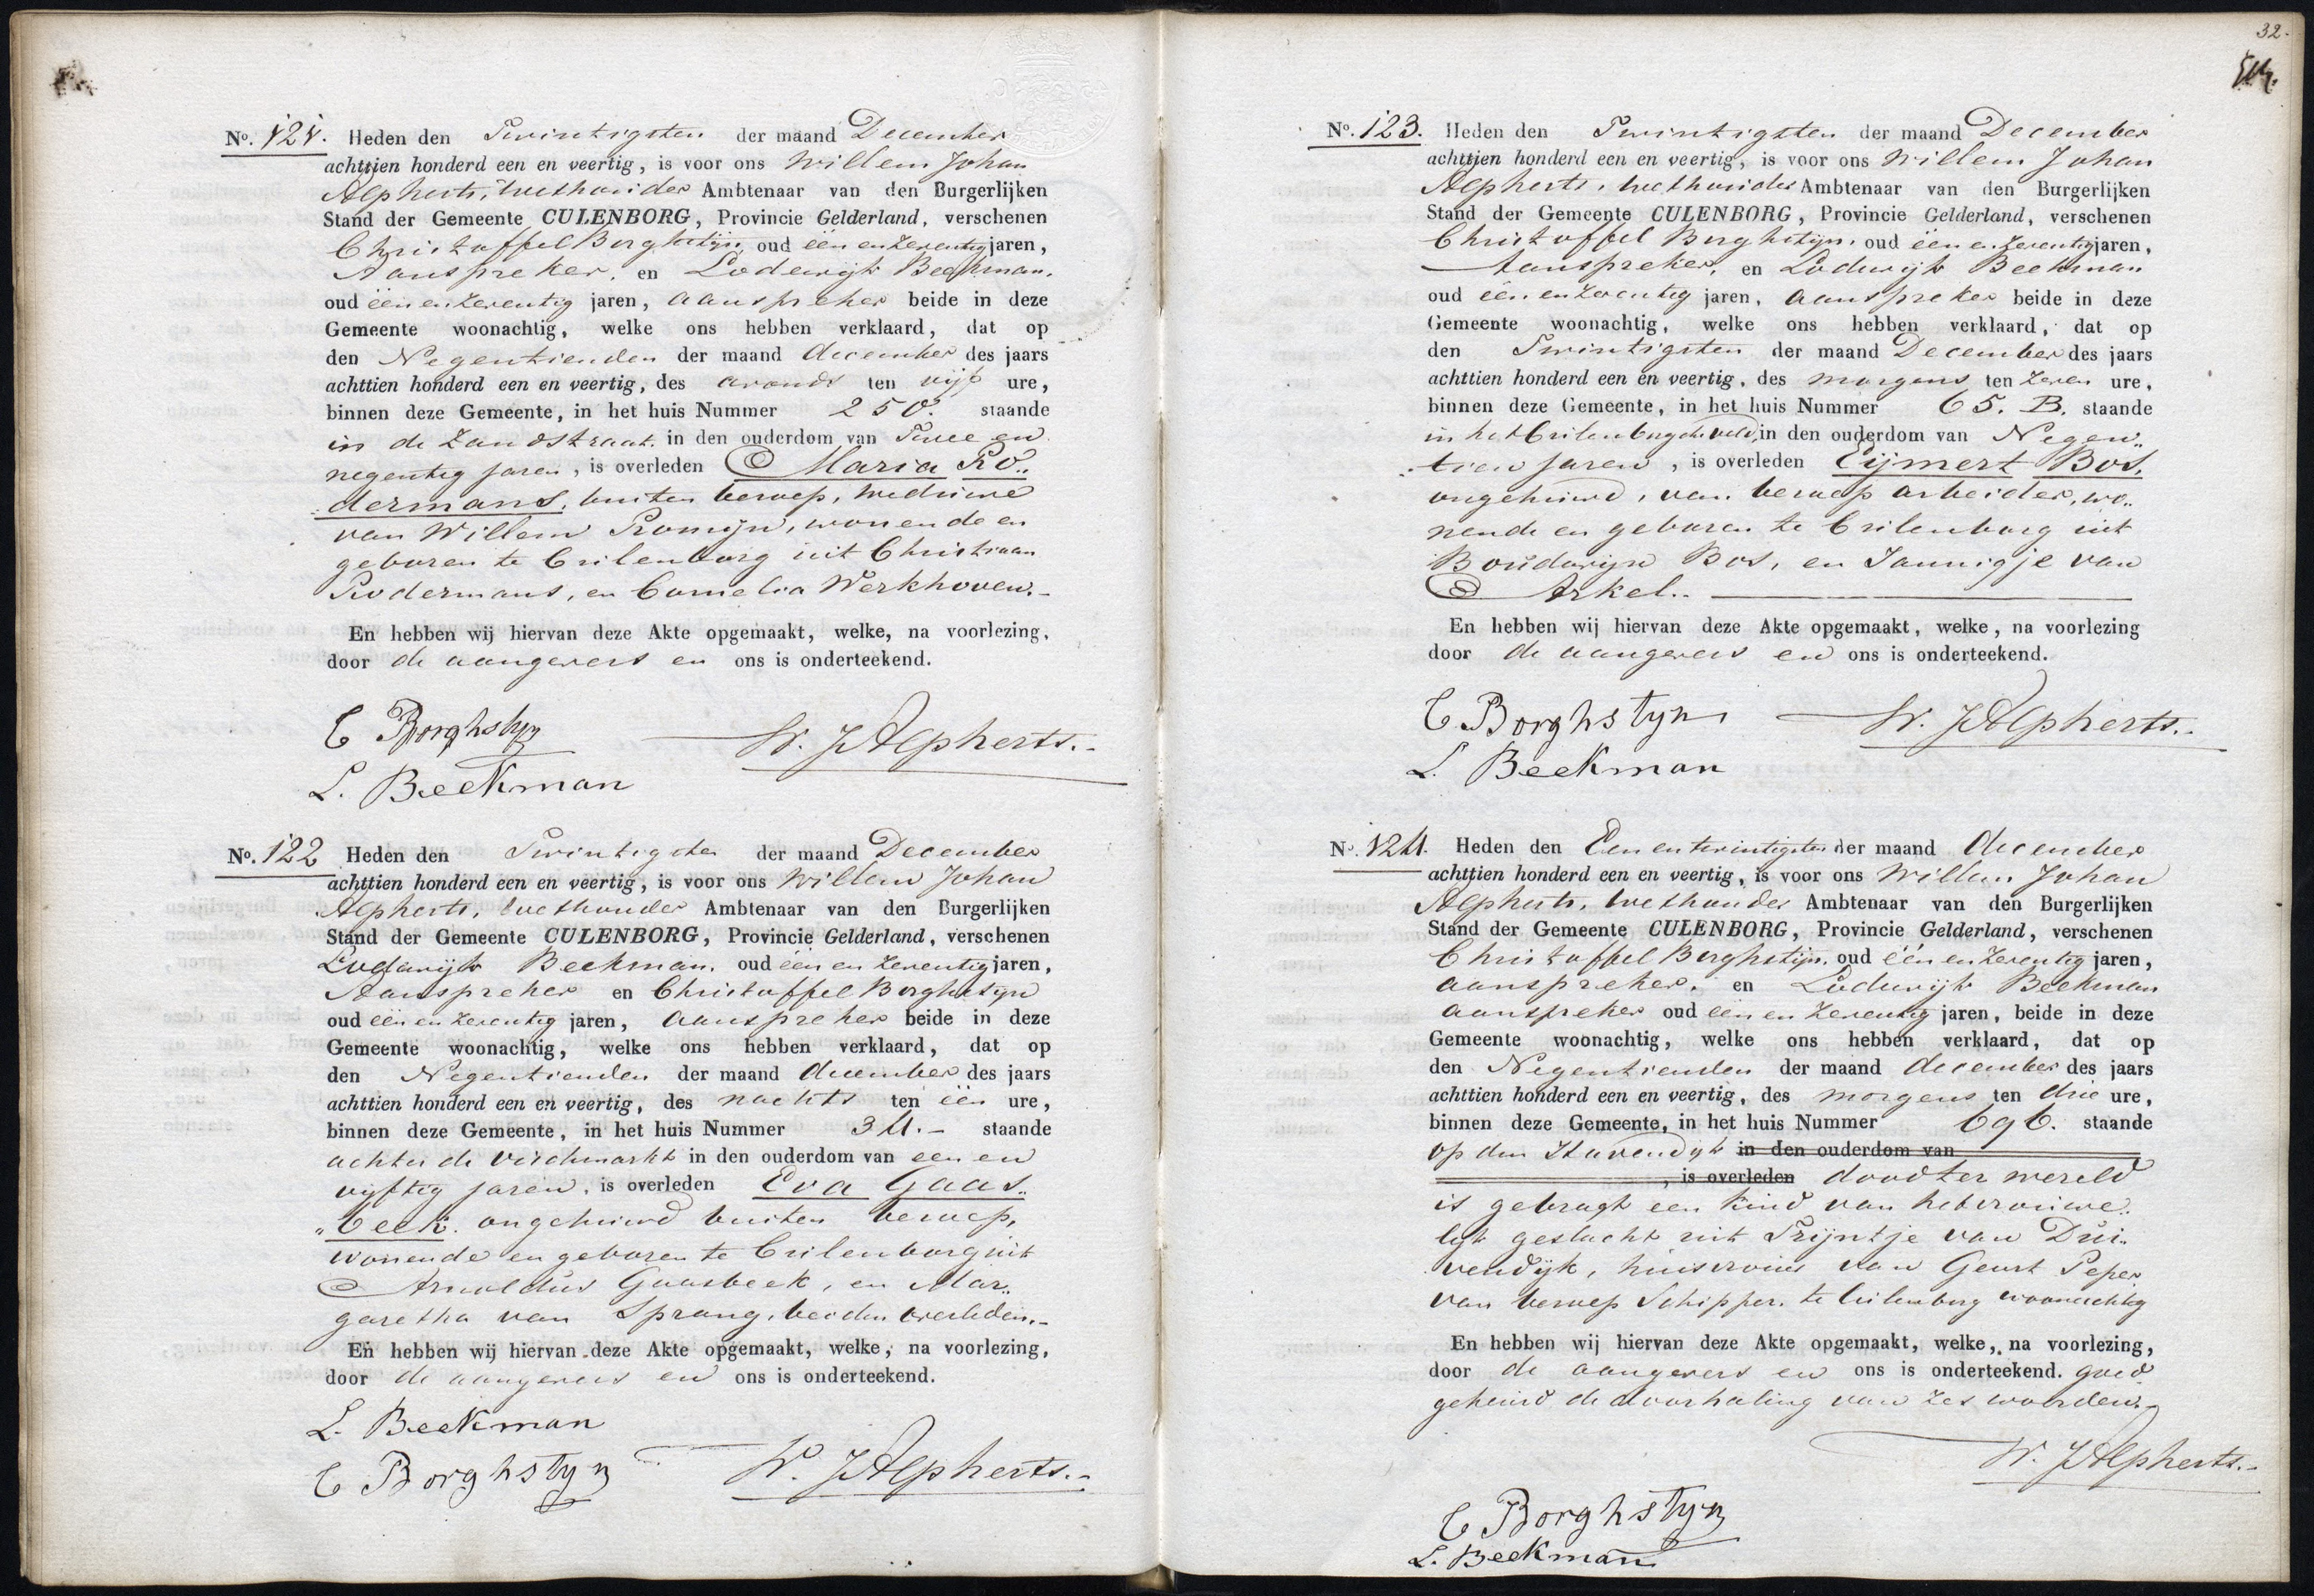 No. 121. Heden den Twintigsten der maand December
achttien honderd een en veertig, is voor ons Willem Johan
Alpherts, wethouder Ambtenaar van den Burgerlijken
Stand der Gemeente CULENBORG, Provincie Gelderland, verschenen
Christoffel Borghstijn, oud één en zeventig jaren,
Aanspreker, en Lodewijk Beekman,
oud één en zeventig jaren, aanspreker beide in deze
Gemeente woonachtig, welke ons hebben verklaard, dat op
den Negentienden der maand december des jaars
achttien honderd een en veertig, des avonds ten vijf ure,
binnen deze Gemeente, in het huis Nummer 250. staande
in de Zandstraat. in den ouderdom van Twee en
negentig jaren, is overleden Maria Ro„
dermans, buiten beroep, weduwe
van Willem Romijn, wonende en
geboren te Cuilenborg uit Christiaan
Rodermans, en Cornelia Werkhoven.-
En hebben wij hiervan deze Akte opgemaakt, welke, na voorlezing,
door de aangevers en ons is onderteekend.
C Borghstyn
W. J Alpherts.-
L. Beekman
No. 122 Heden den Twintigsten der maand December
achttien honderd een en veertig, is voor ons Willem Johan
Alpherts, wethouder Ambtenaar van den Burgerlijken
Stand der Gemeente CULENBORG, Provincie Gelderland, verschenen
Lodewijk Beekman. oud één en zeventig jaren,
Aanspreker en Christoffel Borghstijn
oud één en zeventig jaren, aanspreker beide in deze
Gemeente woonachtig, welke ons hebben verklaard, dat op
den Negentienden der maand december des jaars
achttien honderd een en veertig, des nachts ten één ure,
binnen deze Gemeente, in het huis Nummer 34.- staande
achter de vischmarkt in den ouderdom van een en
vijftig jaren, is overleden Eva Gaas„
„beek. ongehuwd buiten beroep,
wonende en geboren te Cuilenborg uit
Arnoldus Gaasbeek, en Mar„
garetha van Sprang, beiden overleden.-
En hebben wij hiervan deze Akte opgemaakt, welke, na voorlezing,
door de aangevers en ons is onderteekend.
L. Beekman
C Borghstyn
W. J Alpherts.-
32.
No. 123. Heden den Twintigsten der maand December
achttien honderd een en veertig, is voor ons Willem Johan
Alpherts, wethouder Ambtenaar van den Burgerlijken
Stand der Gemeente CULENBORG, Provincie Gelderland, verschenen
Christoffel Borghstijn, oud één en zeventig jaren,
Aanspreker, en Lodewijk Beekman
oud één en zeventig jaren, aanspreker beide in deze
Gemeente woonachtig, welke ons hebben verklaard, dat op
den Twintigsten der maand December des jaars
achttien honderd een en veertig, des morgens ten zeven ure,
binnen deze Gemeente, in het huis Nummer 65. B. staande
in het Cuilenborgsche veld, in den ouderdom van Negen„
tien jaren, is overleden Eijmert Bos,
ongehuwd, van beroep arbeider, wo„
nende en geboren te Cuilenborg uit
Boudewijn Bos, en Jannigje van
Arkel.-
En hebben wij hiervan deze Akte opgemaakt, welke, na voorlezing
door de aangevers en ons is onderteekend.
C. Borghstyn
W. J Alpherts.-
L. Beekman
No. 124. Heden den Een en twintigsten der maand december
achttien honderd een en veertig, is voor ons Willem Johan
Alpherts, wethouder Ambtenaar van den Burgerlijken
Stand der Gemeente CULENBORG, Provincie Gelderland, verschenen
Christoffel Borghstijn, oud één en zeventig jaren,
aanspreker, en Lodewijk Beekman
aanspreker oud één en zeventig jaren, beide in deze
Gemeente woonachtig, welke ons hebben verklaard, dat op
den Negentienden der maand december des jaars
achttien honderd een en veertig, des morgens ten drie ure,
binnen deze Gemeente, in het huis Nummer 696. staande
op den Havendijk in den ouderdom van
, is overleden dood ter wereld
is gebragt een kind van het vrouwe„
lijk geslacht uit Trijntje van Dui„
vendijk, huisvrouw van Geurt Peper
van beroep Schipper. te Cuilenborg woonachtig
En hebben wij hiervan deze Akte opgemaakt, welke, na voorlezing,
door de aangevers en ons is onderteekend. goed
gekeurd de doorhaling van zes woorden.-
W. J Alpherts.-
C Borghstyn
L. Beekman